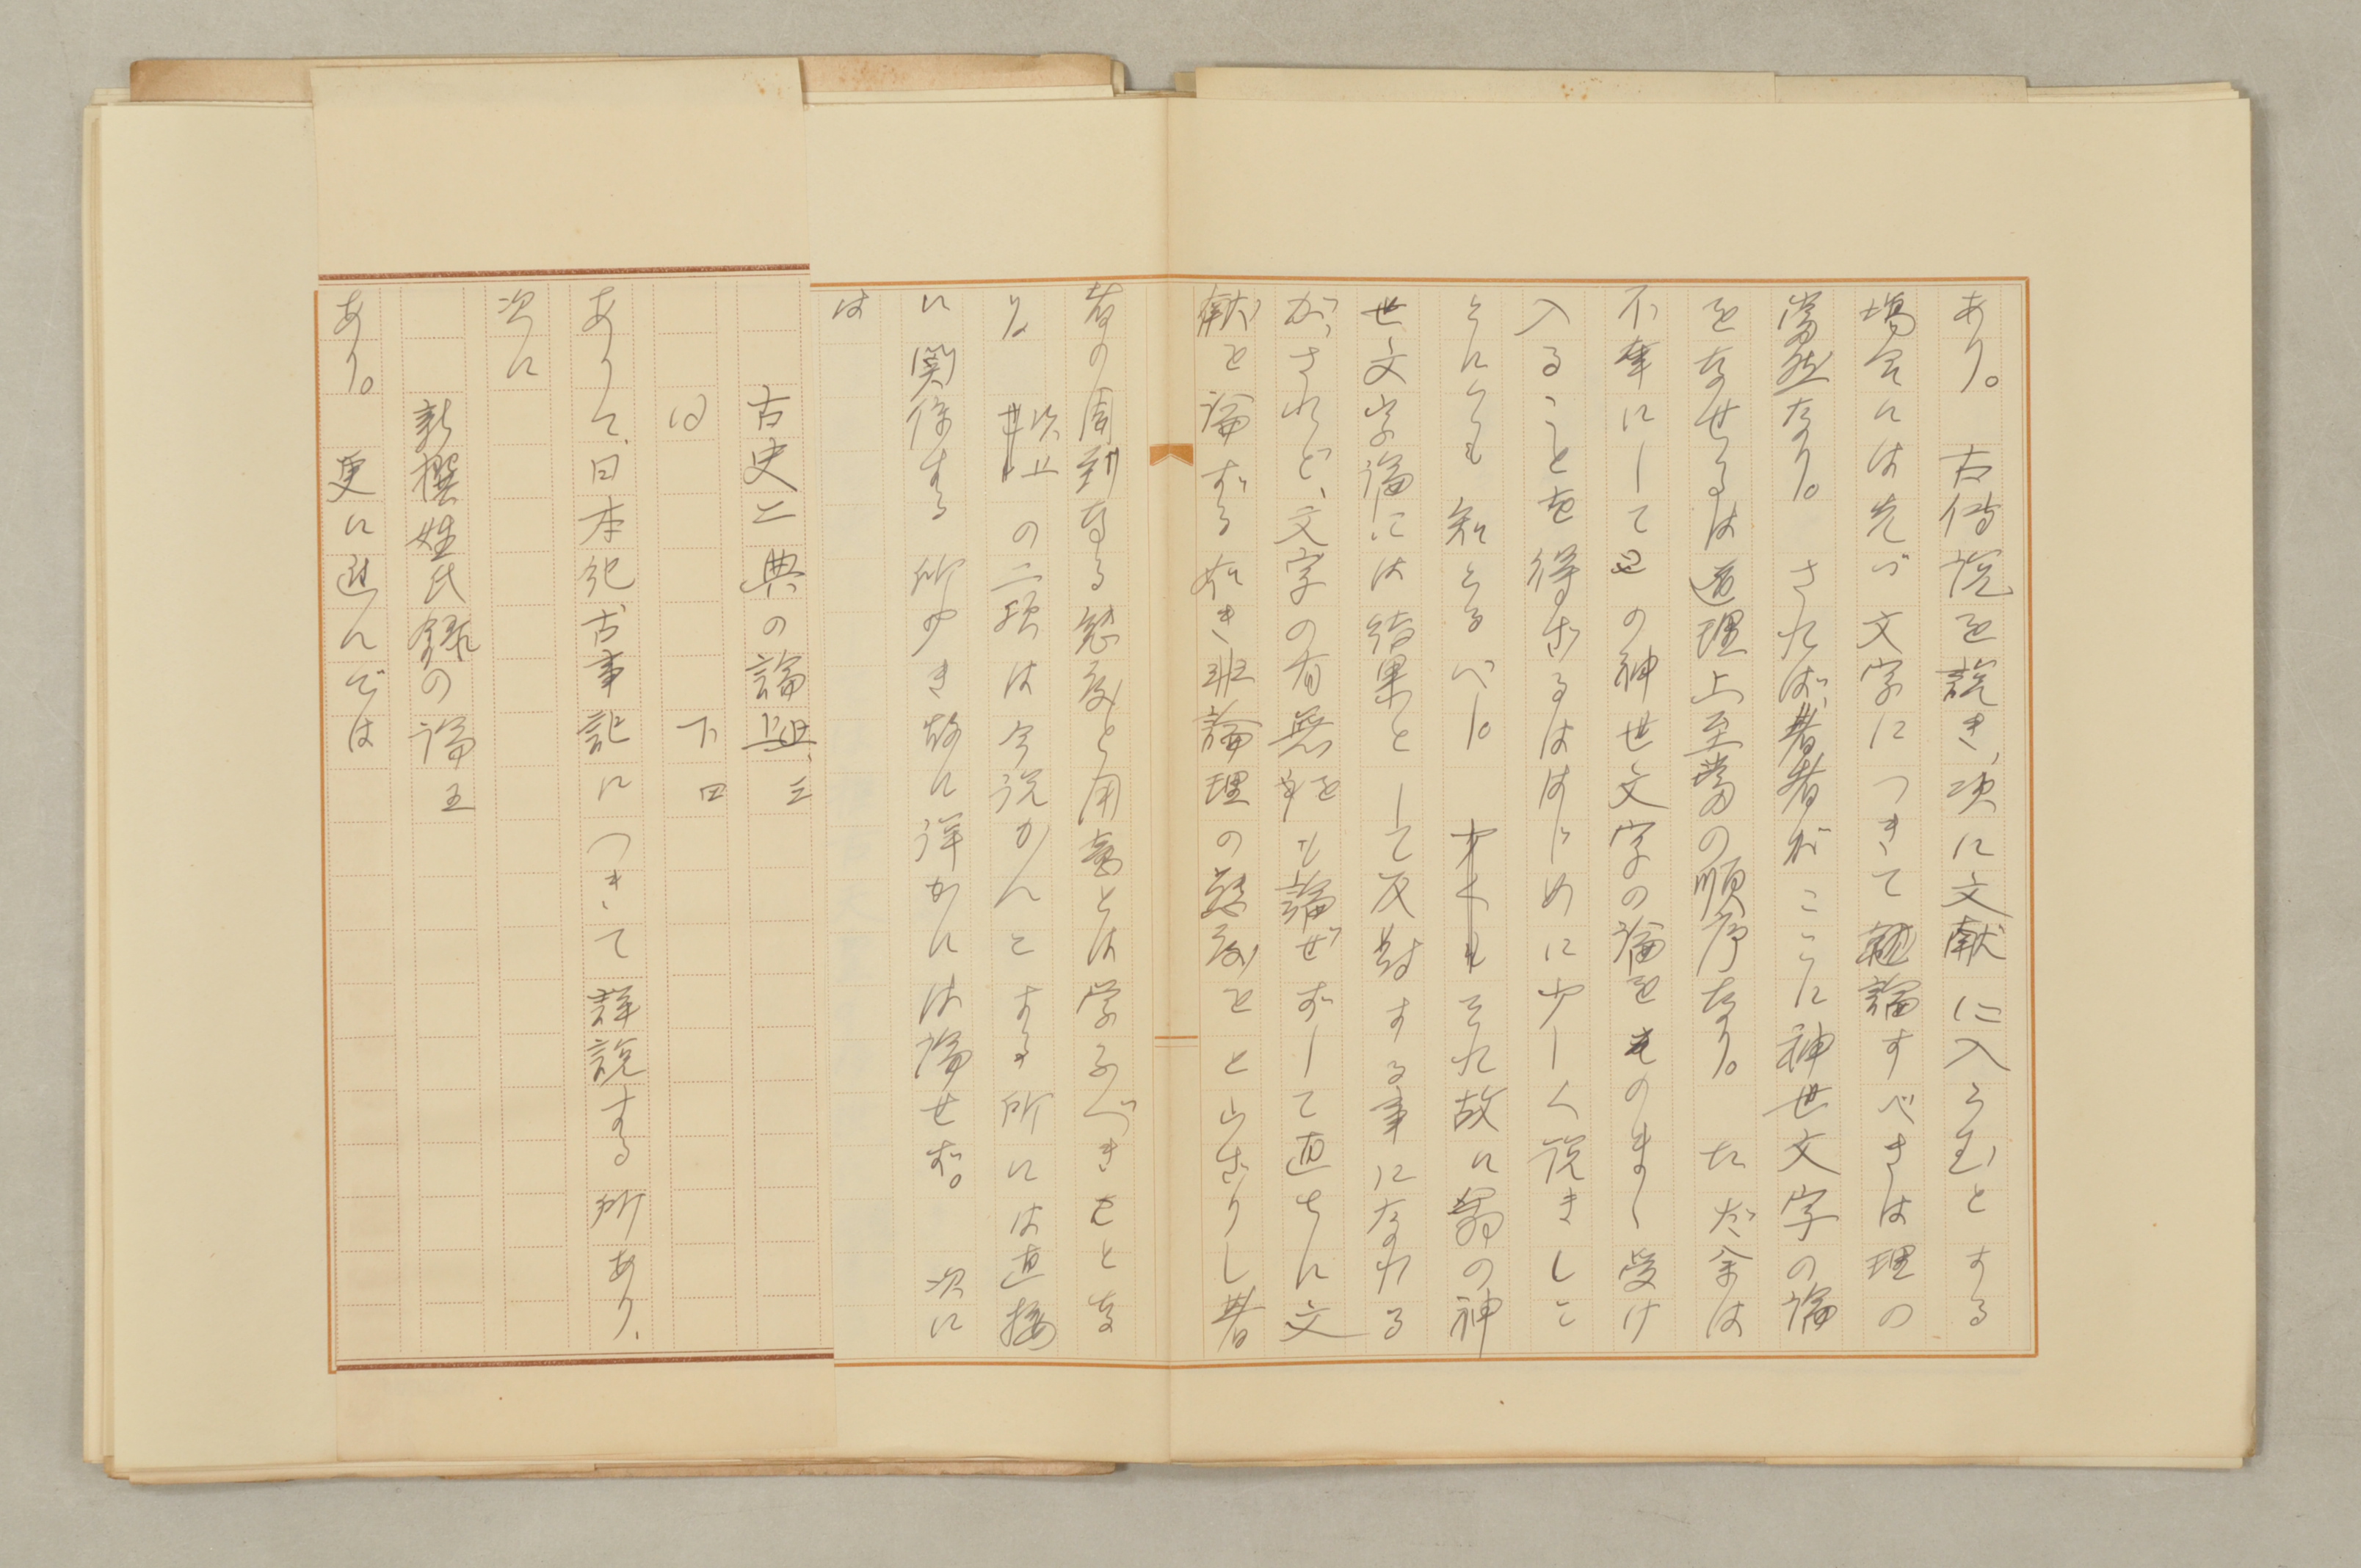 あり。 古傳説を説き、次に文献に入らむとする
場合には先づ文字につきて論すべきは理の
當然なり。 されば、著者がここに神世文字の論
をなせるは道理上至當の順序なり。 ただ余は
不幸にして の神世文字の論をそのまゝ受け
入ることを得ざるははじめに少しく説きしこ
とにても知らるべし。 それ故に翁の神
世文字論には結果として反対する事になれる
が、されど、文字の有無をも論ぜずして直ちに文
献を論ずる如き非論理の態度をとらざりし著
者の周到なる態度と用意とは学ぶべきことな
り。 以上の二項は今説かんとする所には直接
に関係する所少き故に詳かには論せず。 次に
は
古史二典の論 上 三
同 下 四
ありて、日本紀古事記につきて詳説する所あり、
次に
新撰姓氏録の論 五
あり。 更に進んでは